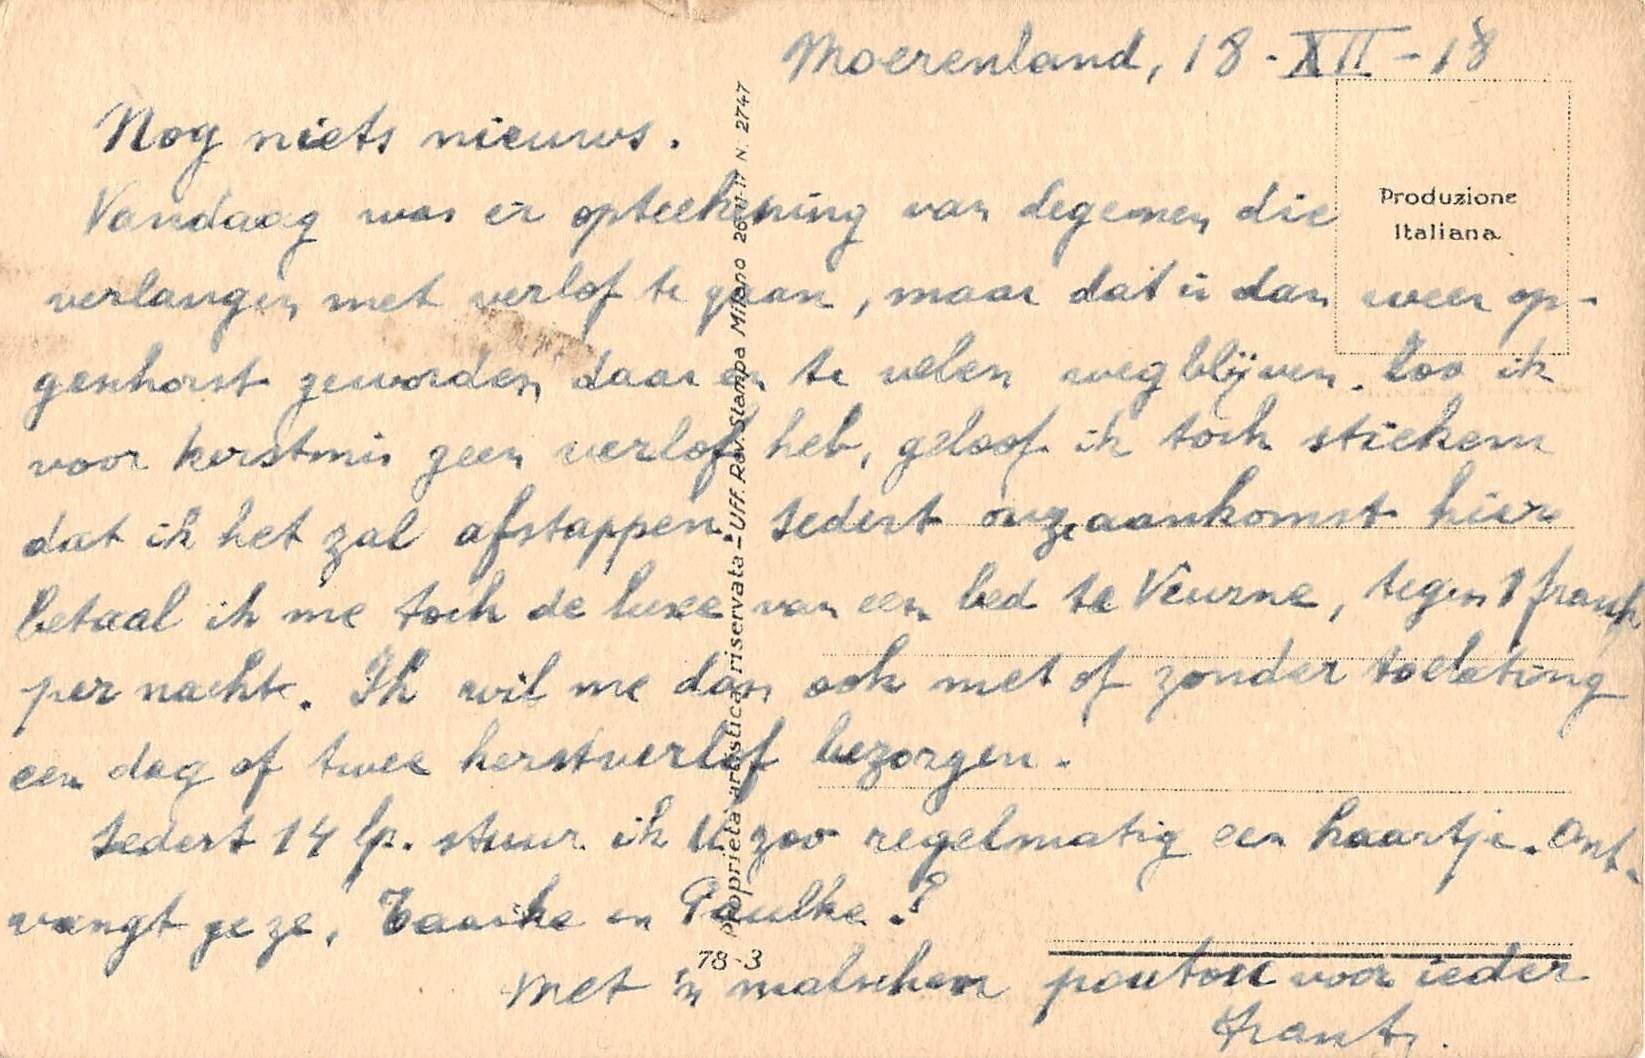 Moerenland, 18-XII-18
Nog niets nieuws.
Vandaag was er opteekening van degenen die
verlangen met verlof te gaan, maar dat is dan weer op-
genhorst geworden daar er te velen wegblijven. Zoo ik
voor kerstmis geen verlof heb, geloof ik toch stiekem
dat ik het zal afstappen. Sedert onze aankomst hier
betaal ik me toch de luxe van een bed te Veurne, tegen 1 frank
per nacht. Ik wil me dan ook met of zonder toelating
een dag of twee kerstverlof bezorgen.
Sedert 14 lp. stuur ik U zoo regelmatig een kaartje. Ont-
vangt ge ze, en Paulke?
Met 'n malschen poutou voor ieder
Frants.
Produzione
Italiana
Proprietà artistica riservata - Uff. Rev. Stampa Milano 26-11-17 N. 2747
78-3